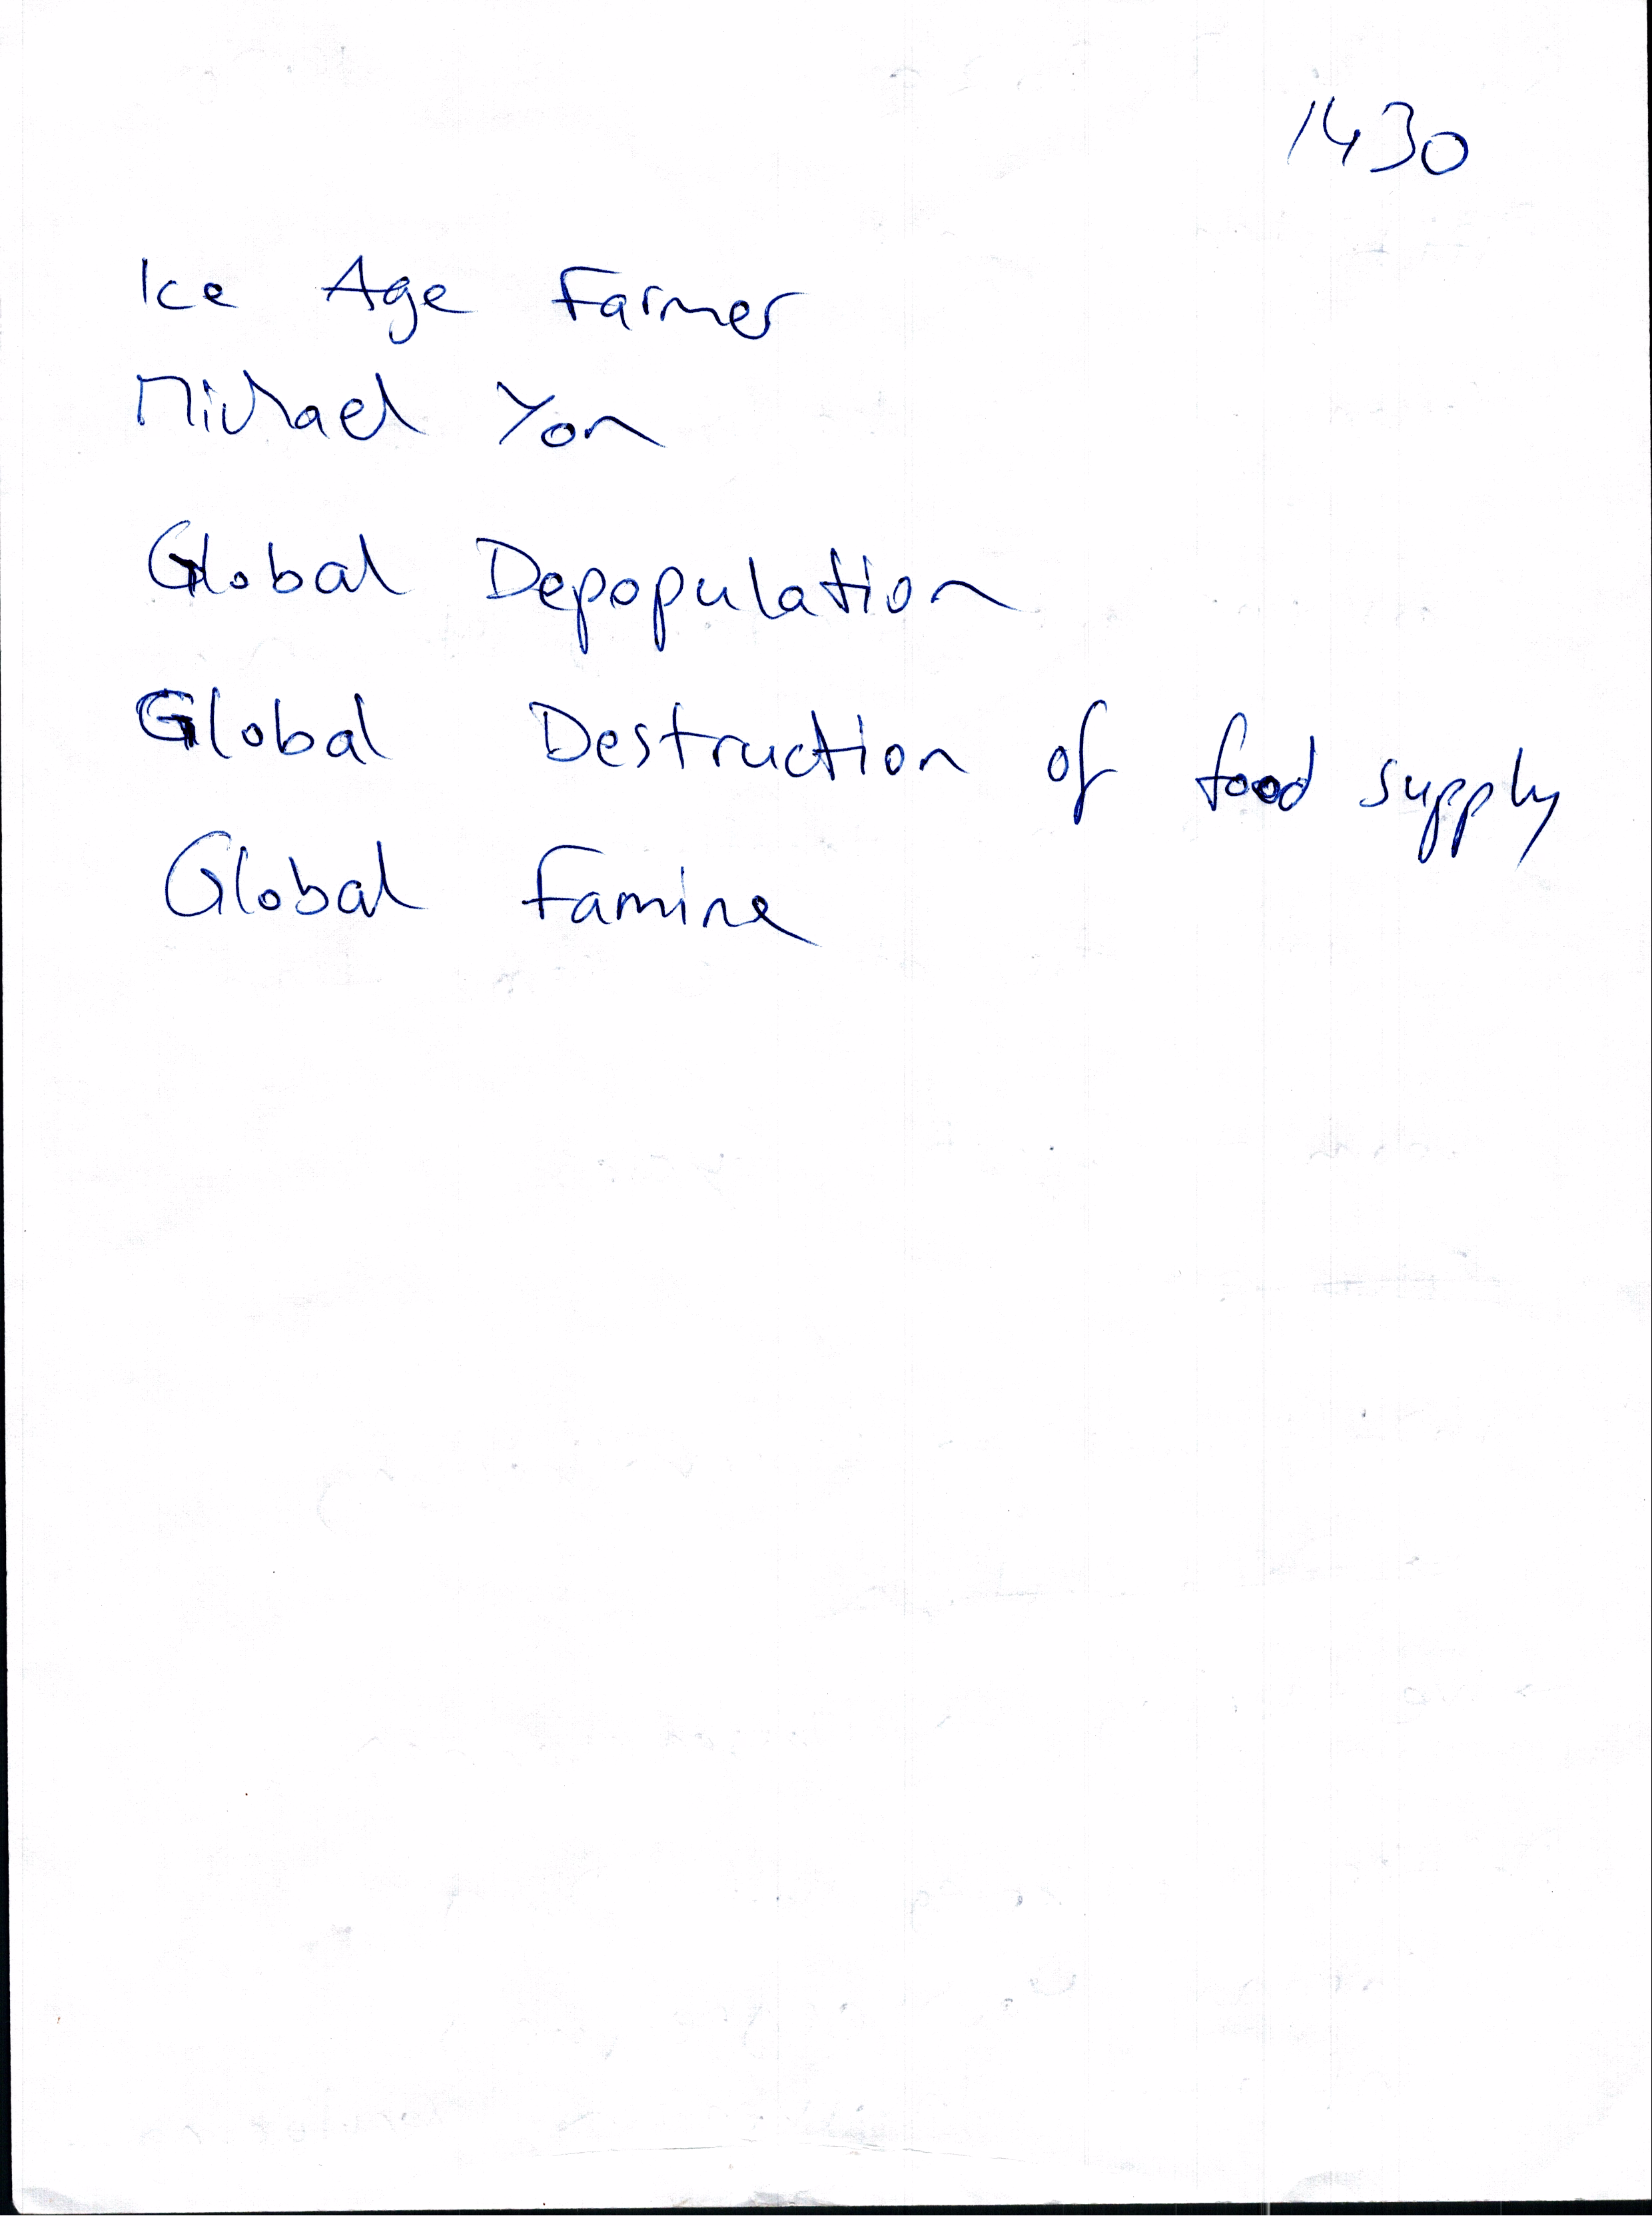 1430
Ice Age Farmer
Michael Yon
Global Depopulation
Global Destruction of food supply
Global Famine